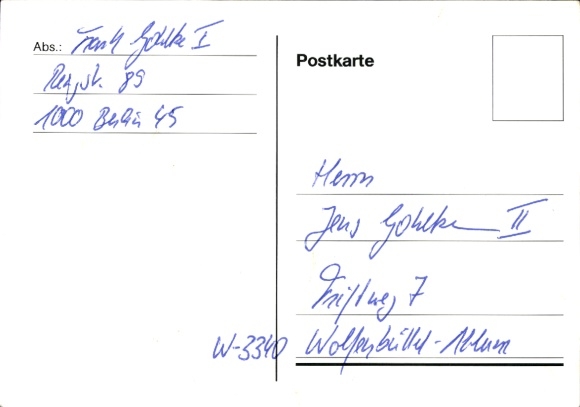 Abs.: Frank Gohlke I
89
1000 Berlin 45
Postkarte
Herrn
Jens Gohlke II
Triftweg 7
W-3340 Wolfenbüttel-Ahlum